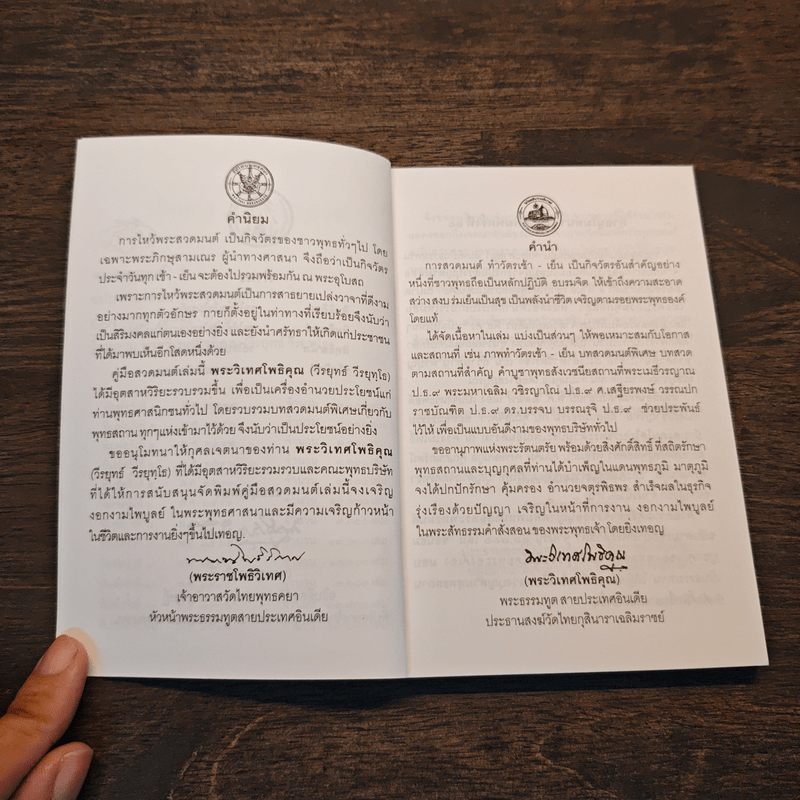 คำนิยม
การไหว้พระสวดมนต์ เป็นกิจวัตรของชาวพุทธทั่วๆไป โดย
เฉพาะพระภิกษุสามเณร ผู้นำทางศาสนา จึงถือว่าเป็นกิจวัตร
ประจำวันทุก เช้า - เย็น จะต้องไปรวมพร้อมกัน ณ พระอุโบสถ
เพราะการไหว้พระสวดมนต์เป็นการสาธยายเปล่งวาจาที่ดีงาม
อย่างมากทุกตัวอักษร กายก็ตั้งอยู่ในท่าทางที่เรียบร้อยจึงนับว่า
เป็นสิริมงคลแก่ตนเองอย่างยิ่ง และยังนำศรัทธาให้เกิดแก่ประชาชน
ที่ได้มาพบเห็นอีกโสดหนึ่งด้วย
คู่มือสวดมนต์เล่มนี้ พระวิเทศโพธิคุณ (วีรยุทธ์ วีรยุทฺโธ)
ได้มีอุตสาหวิริยะรวบรวมขึ้น เพื่อเป็นเครื่องอำนวยประโยชน์แก่
ท่านพุทธศาสนิกชนทั่วไป โดยรวบรวมบทสวดมนต์พิเศษเกี่ยวกับ
พุทธสถาน ทุกๆแห่งเข้ามาไว้ด้วย จึงนับว่าเป็นประโยชน์อย่างยิ่ง
ขออนุโมทนาให้กุศลเจตนาของท่าน พระวิเทศโพธิคุณ
(วีรยุทธ์ วีรยุทฺโธ) ที่ได้มีอุตสาหวิริยะรวมรวบและคณะพุทธบริษัท
ที่ได้ให้การสนับสนุนจัดพิมพ์คู่มือสวดมนต์เล่มนี้จงเจริญ
งอกงามไพบูลย์ ในพระพุทธศาสนาและมีความเจริญก้าวหน้า
ในชีวิตและการงานยิ่งๆขึ้นไปเทอญ.
(พระราชโพธิวิเทศ)
เจ้าอาวาสวัดไทยพุทธคยา
หัวหน้าพระธรรมทูตสายประเทศอินเดีย
คำนำ
การสวดมนต์ ทำวัตรเช้า - เย็น เป็นกิจวัตรอันสำคัญอย่าง
หนึ่งที่ชาวพุทธถือเป็นหลักปฏิบัติ อบรมจิต ให้เข้าถึงความสะอาด
สว่าง สงบ ร่มเย็นเป็นสุข เป็นพลังนำชีวิต เจริญตามรอยพระพุทธองค์
โดยแท้
ได้จัดเนื้อหาในเล่ม แบ่งเป็นส่วนๆ ให้พอเหมาะสมกับโอกาส
และสถานที่ เช่น ภาพทำวัตรเช้า - เย็น บทสวดมนต์พิเศษ บทสวด
ตามสถานที่สำคัญ คำบูชาพุทธสังเวชนียสถานที่พระเมธีวรญาณ
ป.ธ.๙ พระมหาเฉลิม วชิรญาโณ ป.ธ.๙ ศ.เสฐียรพงษ์ วรรณปก
ราชบัณฑิต ป.ธ.๙ ดร.บรรจบ บรรณรุจิ ป.ธ.๙ ช่วยประพันธ์
ไว้ให้ เพื่อเป็นแบบอันดีงามของพุทธบริษัททั่วไป
ขออานุภาพแห่งพระรัตนตรัย พร้อมด้วยสิ่งศักดิ์สิทธิ์ ที่สถิตรักษา
พุทธสถานและบุญกุศลที่ท่านได้บำเพ็ญในแดนพุทธภูมิ มาตุภูมิ
จงได้ปกปักรักษา คุ้มครอง อำนวยจตุรพิธพร สำเร็จผลในธุรกิจ
รุ่งเรืองด้วยปัญญา เจริญในหน้าที่การงาน งอกงามไพบูลย์
ในพระสัทธรรมคำสั่งสอน ของพระพุทธเจ้า โดยยิ่งเทอญ
พระวิเทศโพธิคุณ
(พระวิเทศโพธิคุณ)
พระธรรมทูต สายประเทศอินเดีย
ประธานสงฆ์วัดไทยกุสินาราเฉลิมราชย์